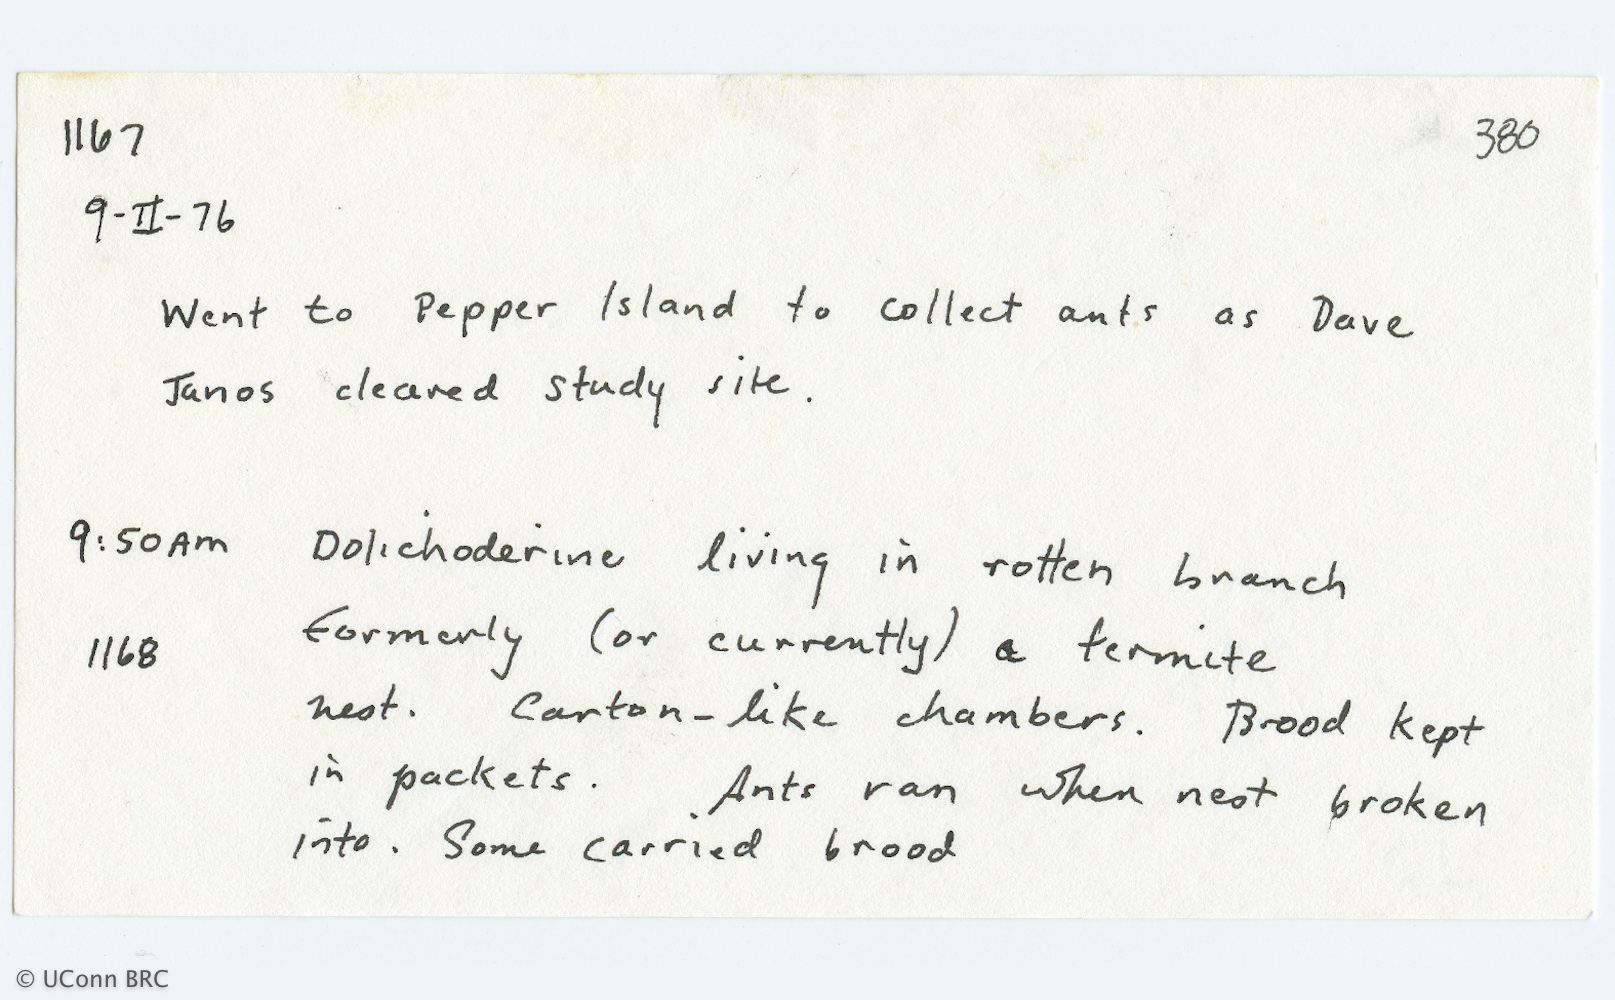 1167 380
9-II-76
Went to Pepper Island to collect ants as Dave
Janos cleared study site.
9:50AM Dolichoderine living in rotten branch
1168 formerly (or currently) a termite
nest. Carton-like chambers. Brood kept
in packets. Ants ran when nest broken
into. Some carried brood
© UConn BRC